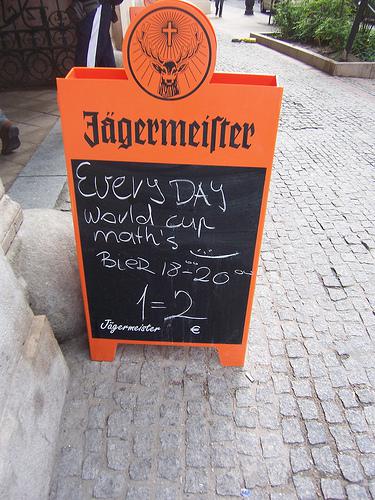 Jägermeiſter
EVERY DAY
world cup
math's
BIER 18⁰⁰-20⁰⁰
1=2
Jägermeister €